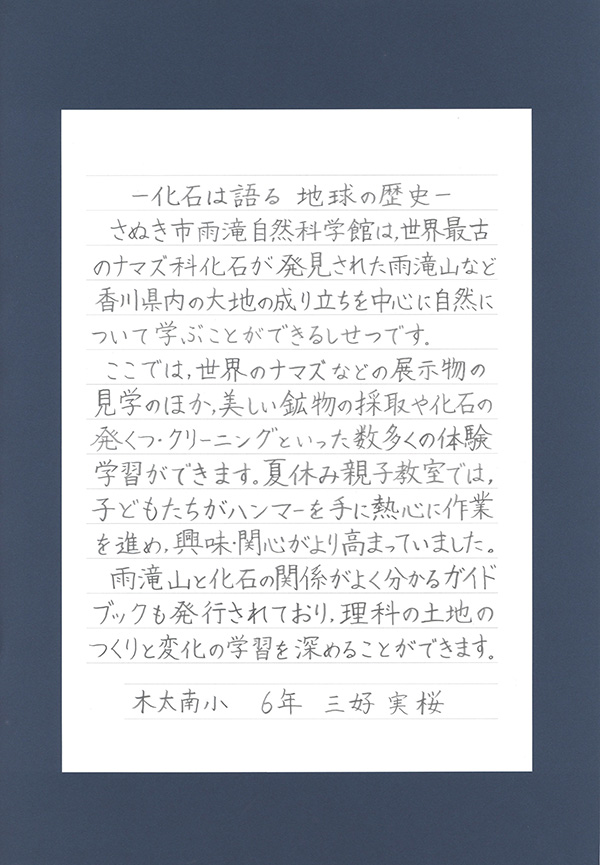 －化石は語る 地球の歴史－
さぬき市雨滝自然科学館は,世界最古
のナマズ科化石が発見された雨滝山など
香川県内の大地の成り立ちを中心に自然に
ついて学ぶことができるしせつです。
ここでは,世界のナマズなどの展示物の
見学のほか,美しい鉱物の採取や化石の
発くつ・クリーニングといった数多くの体験
学習ができます。夏休み親子教室では,
子どもたちがハンマーを手に熱心に作業
を進め,興味・関心がより高まっていました。
雨滝山と化石の関係がよく分かるガイド
ブックも発行されており,理科の土地の
つくりと変化の学習を深めることができます。
木太南小 6年 三好 実桜